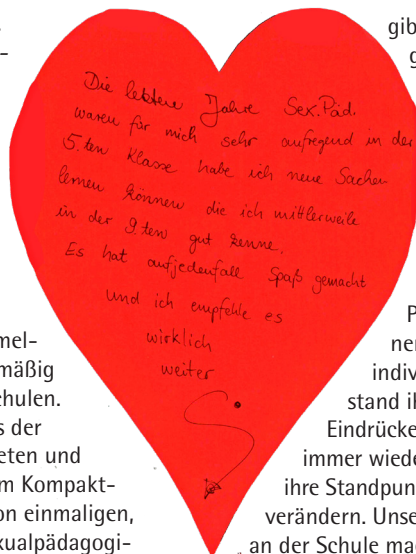 gib
g
Die letzten Jahre Sex.Päd.
waren für mich sehr aufregend in der
5.ten Klasse habe ich neue Sachen
lernen können die ich mittlerweile
in der 9.ten gut kenne.
Es hat aufjedenfall Spaß gemacht
und ich empfehle es
wirklich
weiter
mel-
mäßig
chulen.
s der
eten und
m Kompakt-
on einmaligen,
xualpädagogi-
P
ner
indiv
stand ih
Eindrücke
immer wiede
ihre Standpun
verändern. Unse
an der Schule mac